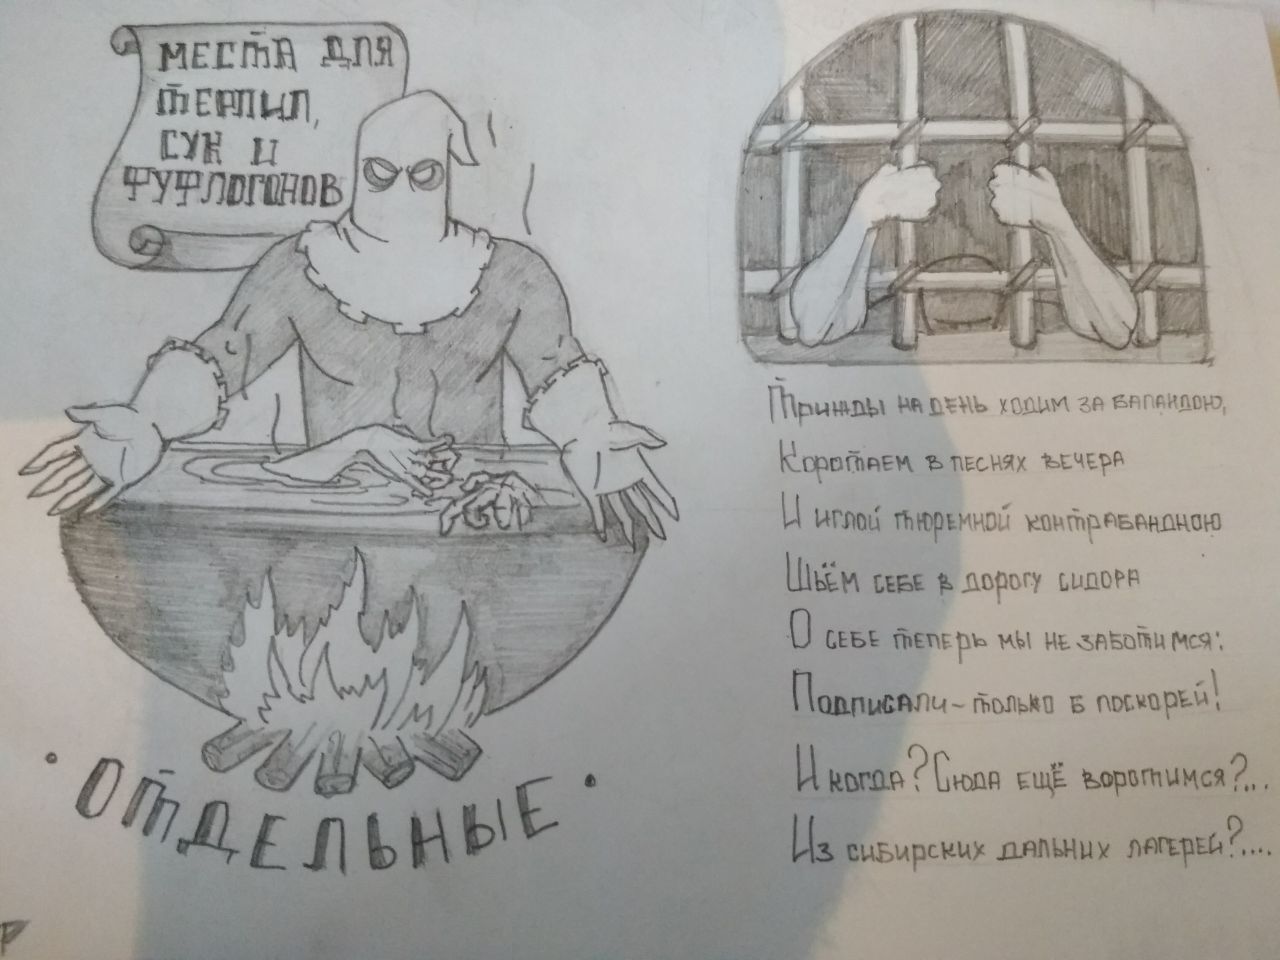 МЕСТА ДЛЯ
ТЕРПИЛ,
СУК И
ФУФЛОГОНОВ
• ОТДЕЛЬНЫЕ •
Трижды на день ходим за баландою,
Коротаем в песнях вечера
И иглой тюремной контрабандною
Шьём себе в дорогу сидора
О себе теперь мы не заботимся:
Подписали - только б поскорей!
И когда? Сюда ещё воротимся?...
Из сибирских дальних лагерей?....
Р